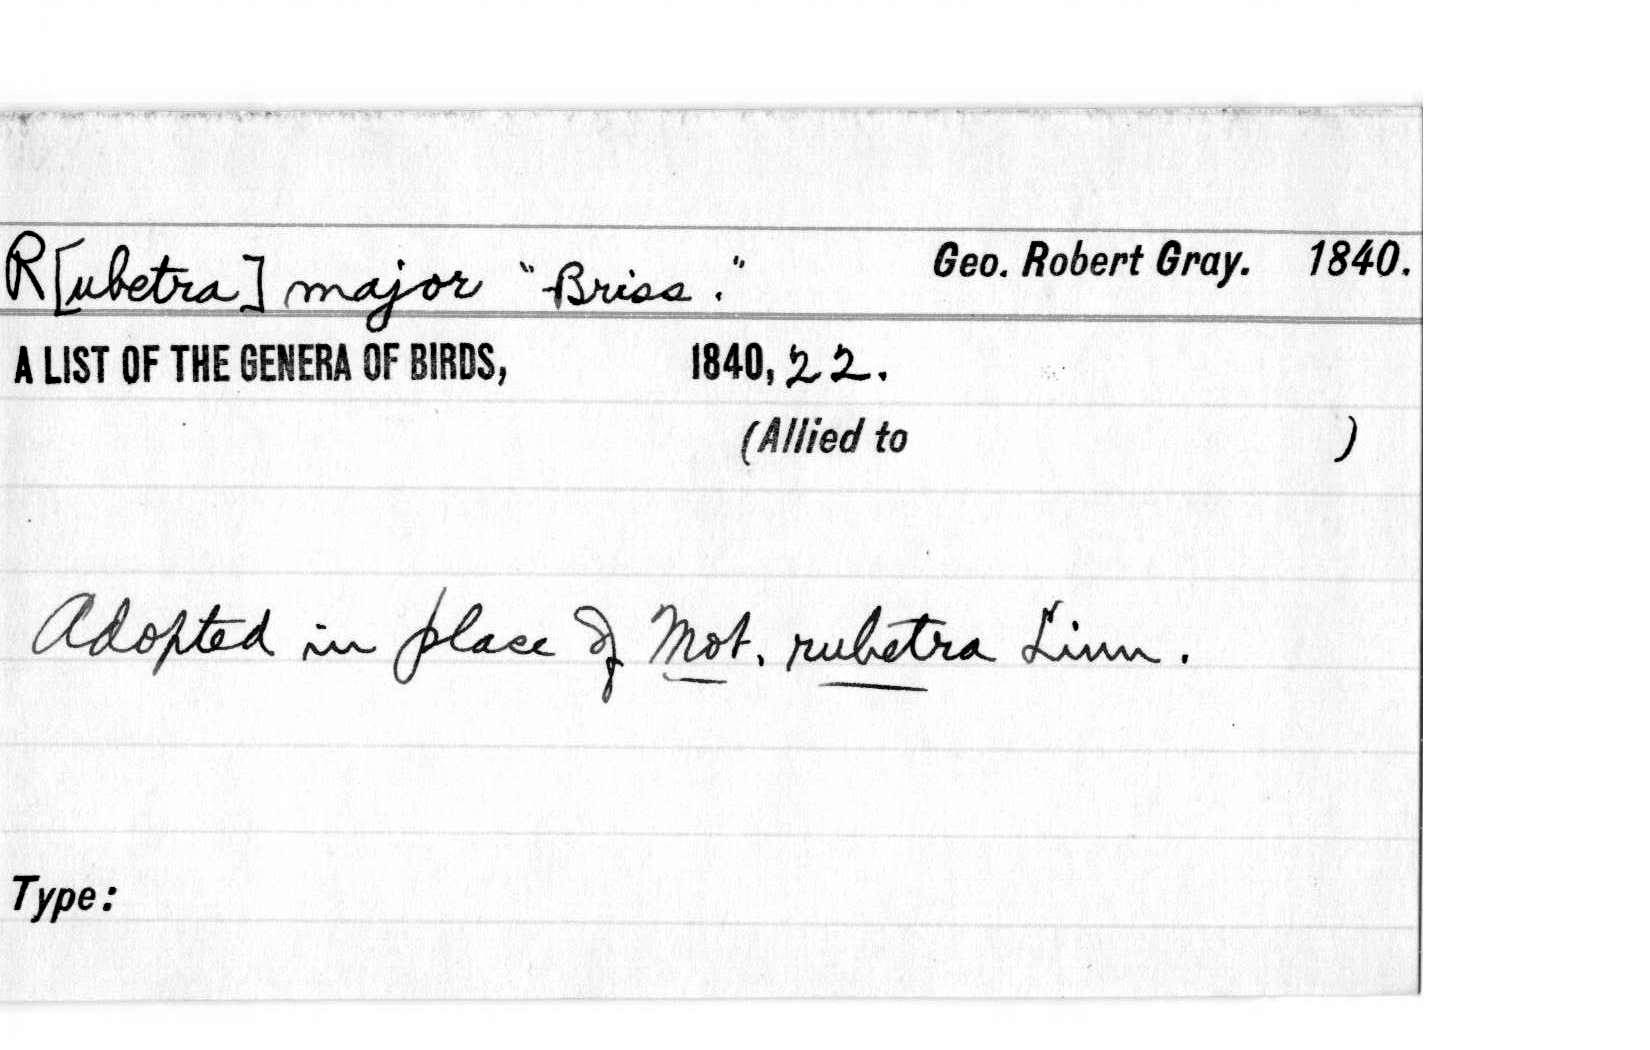 R[ubetra] major "Briss." Geo. Robert Gray. 1840.
A LIST OF THE GENERA OF BIRDS, 1840, 22.
(Allied to )
Adopted in place of Mot. rubetra Linn.
Type: